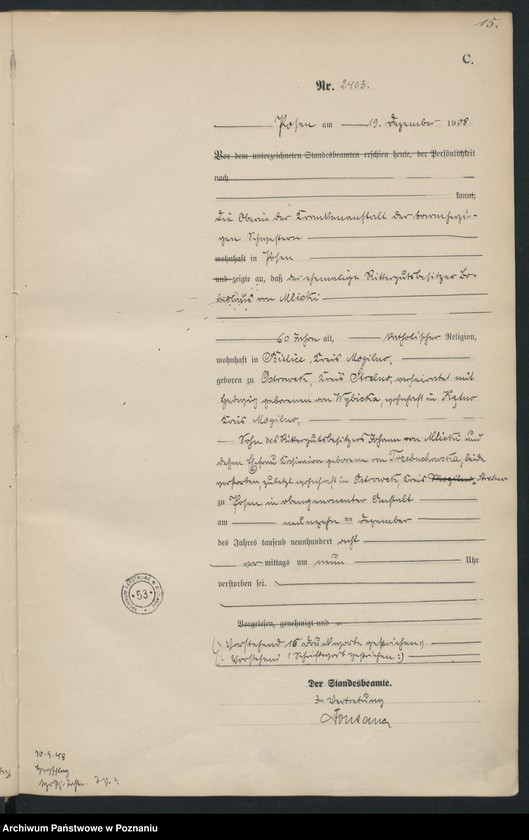 15.
C.
Nr. 2403.
Posen am 19. Dezember 1908
Vor dem unterzeichneten Standesbeamten erschien heute, der Persönlichkeit
nach
kannt,
die Oberin der Krankenanstalt der barmherzi-
gen Schwestern
wohnhaft in Posen
und zeigte an, daß der ehemalige Rittergutsbesitzer Bo-
von Mlicki
60 Jahre alt, katholischer Religion,
wohnhaft in Bielice, Kreis Mogilno,
geboren zu Ostrowek, Kreis Strelno, verheiratet mit
Hedwig geborenen von Wybicka, wohnhaft in
Kreis Mogilno,
Sohn des Rittergutsbesitzers Johann von Mlicki und
dessen Ehefrau Kasimira geborene von Trzebuchowska, beide
verstorben zuletzt wohnhaft in Ostrowek, Kreis Mogilno, Strelno
zu Posen in obengenannter Anstalt
am neunzehn ten Dezember
des Jahres tausend neunhundert acht
vor mittags um neun Uhr
verstorben sei.
Vorgelesen, genehmigt und
(: Vorstehend 15 Druckworte gestrichen :)
(: Vorstehend 1 Schriftwort gestrichen :)
Der Standesbeamte.
In Vertretung
Fontana
53
30.4.48
Archiwum Państwowe w Poznaniu